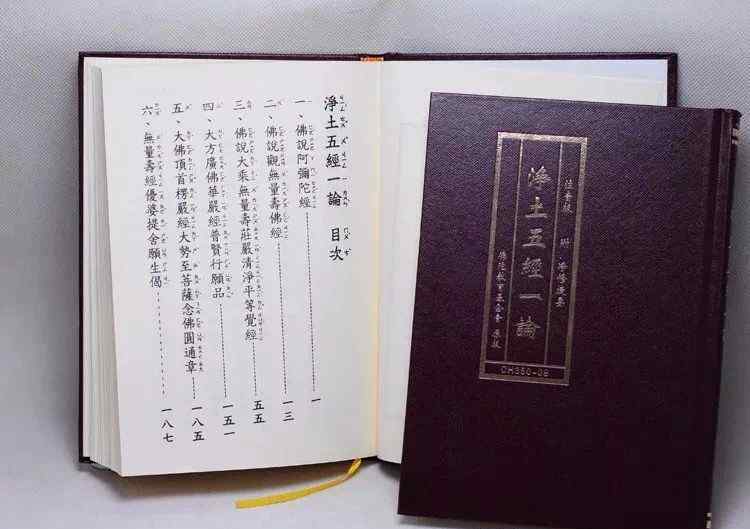 淨土五經一論 目次
一、佛說阿彌陀經 一
二、佛說觀無量壽佛經 一三
三、佛說大乘無量壽莊嚴清淨平等覺經 五五
四、大方廣佛華嚴經普賢行願品 一五一
五、大佛頂首楞嚴經大勢至菩薩念佛圓通章 一八五
六、無量壽經優婆提舍願生偈 一八七
注音版 附 淨修捷要
淨土五經一論
佛陀教育基金會 原版
CH350-09